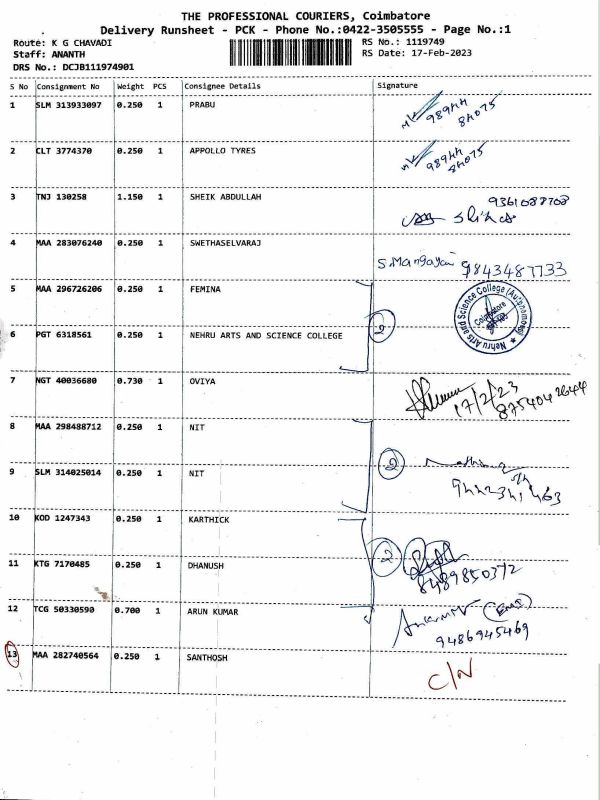 THE PROFESSIONAL COURIERS, Coimbatore
Delivery Runsheet - PCK - Phone No.:0422-3505555 - Page No.:1
Route: K G CHAVADI RS No.: 1119749
Staff: ANANTH RS Date: 17-Feb-2023
DRS No.: DCJB111974901
S No Consignment No Weight PCS Consignee Details Signature
1 SLM 313933097 0.250 1 PRABU 98944
84075
2 CLT 3774370 0.250 1 APPOLLO TYRES 98944
84075
3 TNJ 130258 1.150 1 SHEIK ABDULLAH 9361087708
4 MAA 283076240 0.250 1 SWETHASELVARAJ S.Mangayai 9843487733
5 MAA 296726206 0.250 1 FEMINA
Nehru Arts and Science College (Autonomous) Coimbatore
6 PGT 6318561 0.250 1 NEHRU ARTS AND SCIENCE COLLEGE 2
7 NGT 40036680 0.730 1 OVIYA 17/2/23
8754042644
8 MAA 298488712 0.250 1 NIT
2
9 SLM 314025014 0.250 1 NIT
10 KOD 1247343 0.250 1 KARTHICK
2
11 KTG 7170485 0.250 1 DHANUSH 8489850372
12 TCG 50330590 0.700 1 ARUN KUMAR
9486945469
13 MAA 282740564 0.250 1 SANTHOSH C/N